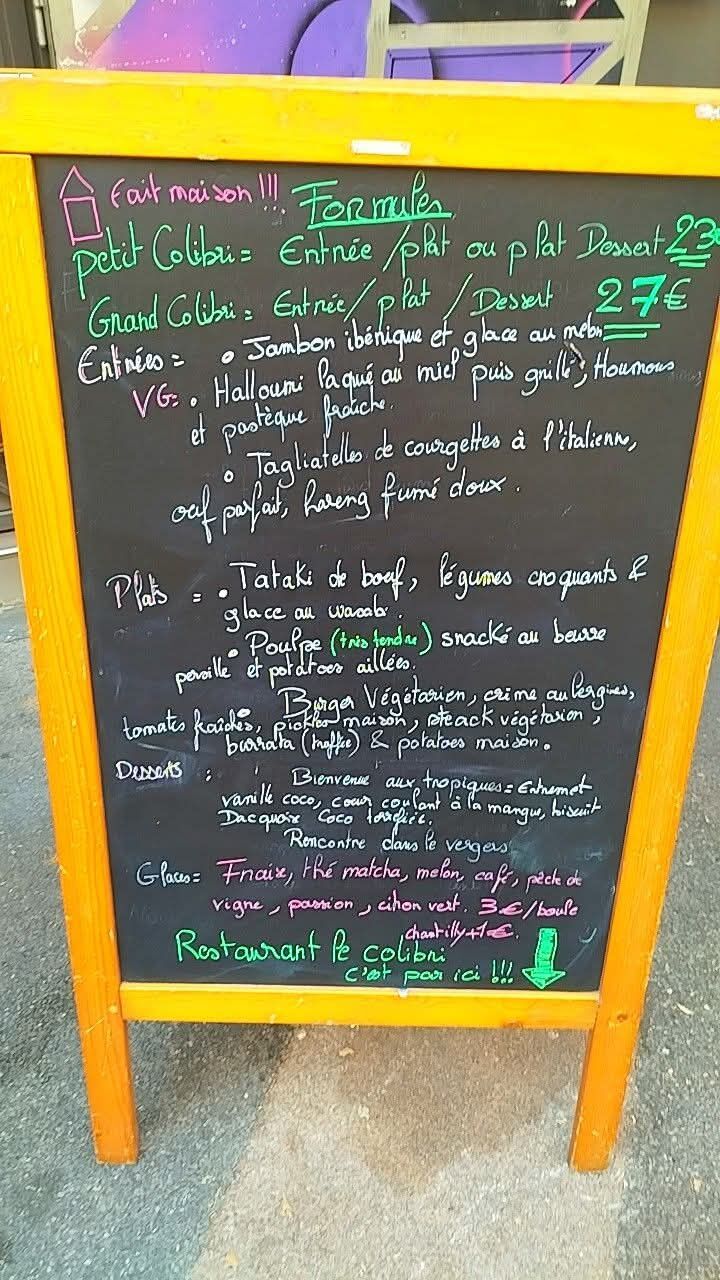 Fait maison !!! Formules
petit Colibri = Entrée / plat ou plat Dessert 23€
Grand Colibri = Entrée / plat / Dessert 27€
Entrées = • Jambon ibérique et glace au melon
VG: • Halloumi laqué au miel puis grillé, Houmous
et pastèque fraîche.
• Tagliatelles de courgettes à l'italienne,
oeuf parfait, hareng fumé doux.
Plats = • Tataki de boeuf, légumes croquants &
glace au wasabi.
• Poulpe (très tendre) snacké au beurre
persillé et potatoes aillées.
• Burger Végétarien, crème aubergines,
tomates fraîches, pickles maison, steack végétarien,
burrata (truffée) & potatoes maison.
Desserts : Bienvenue aux tropiques = Entremet
vanille coco, coeur coulant à la mangue, biscuit
Dacquoise Coco torréfiée.
Rencontre dans le vergers
Glaces = Fraise, thé matcha, melon, café, pêche de
vigne, passion, citron vert. 3€/boule
chantilly +1€.
Restaurant le colibri
c'est par ici !!!